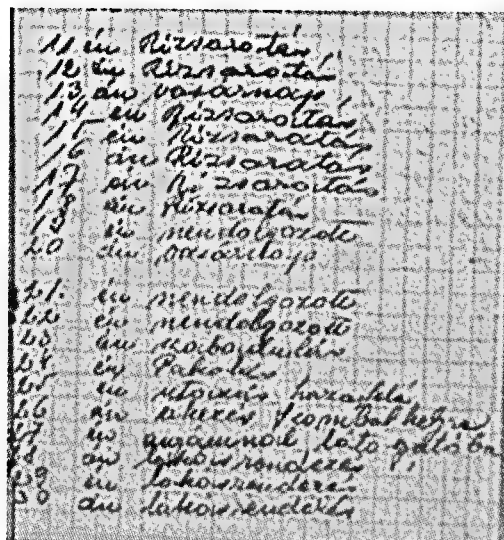 11 én Rizsaratás
12 én Rizsaratás
13 án vasárnap
14 én Rizsaratás
15 én Rizsaratás
16 án Rizsaratás
17 én Rizsaratás
18 án Rizsaratás
19 én nemdolgozott
20 án
21. én nemdolgozott
22 én nemdolgozott
23 án
24 én Pakolás
25 én utazás
26 án
27 én
28 án lakásrendezés
29 én lakásrendezés
30 án lakásrendezés